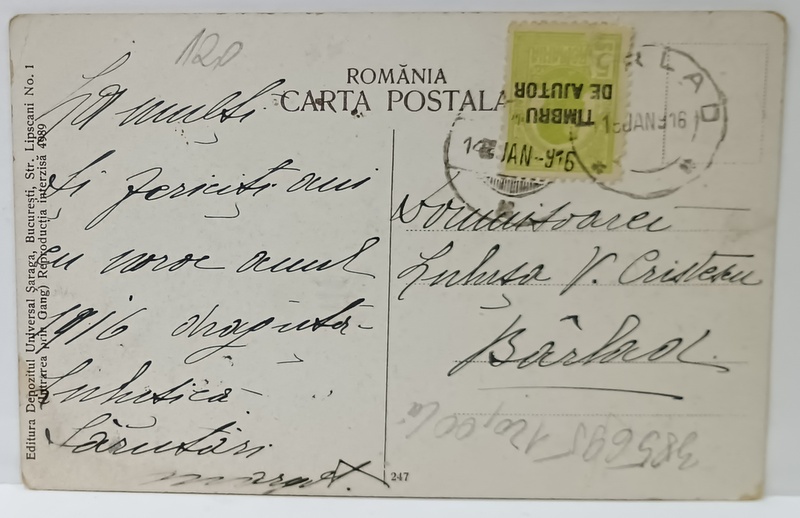 120
ROMÂNIA
CARTA POSTALA
TIMBRU
DE AJUTOR
14 JAN-916
BÂRLAD
15 JAN 916
La mulți
și fericiți ani
cu noroc anul
1916 draguța
Luluțica
Sărutări
Domnișoarei
Luluța V. Cristescu
Bârlad
385695 120,00 lei
247
Editura Depozitul Universal Șaraga, București, Str. Lipscani No. 1
(Intrarea prin Gang) Reproducția interzisă 4989